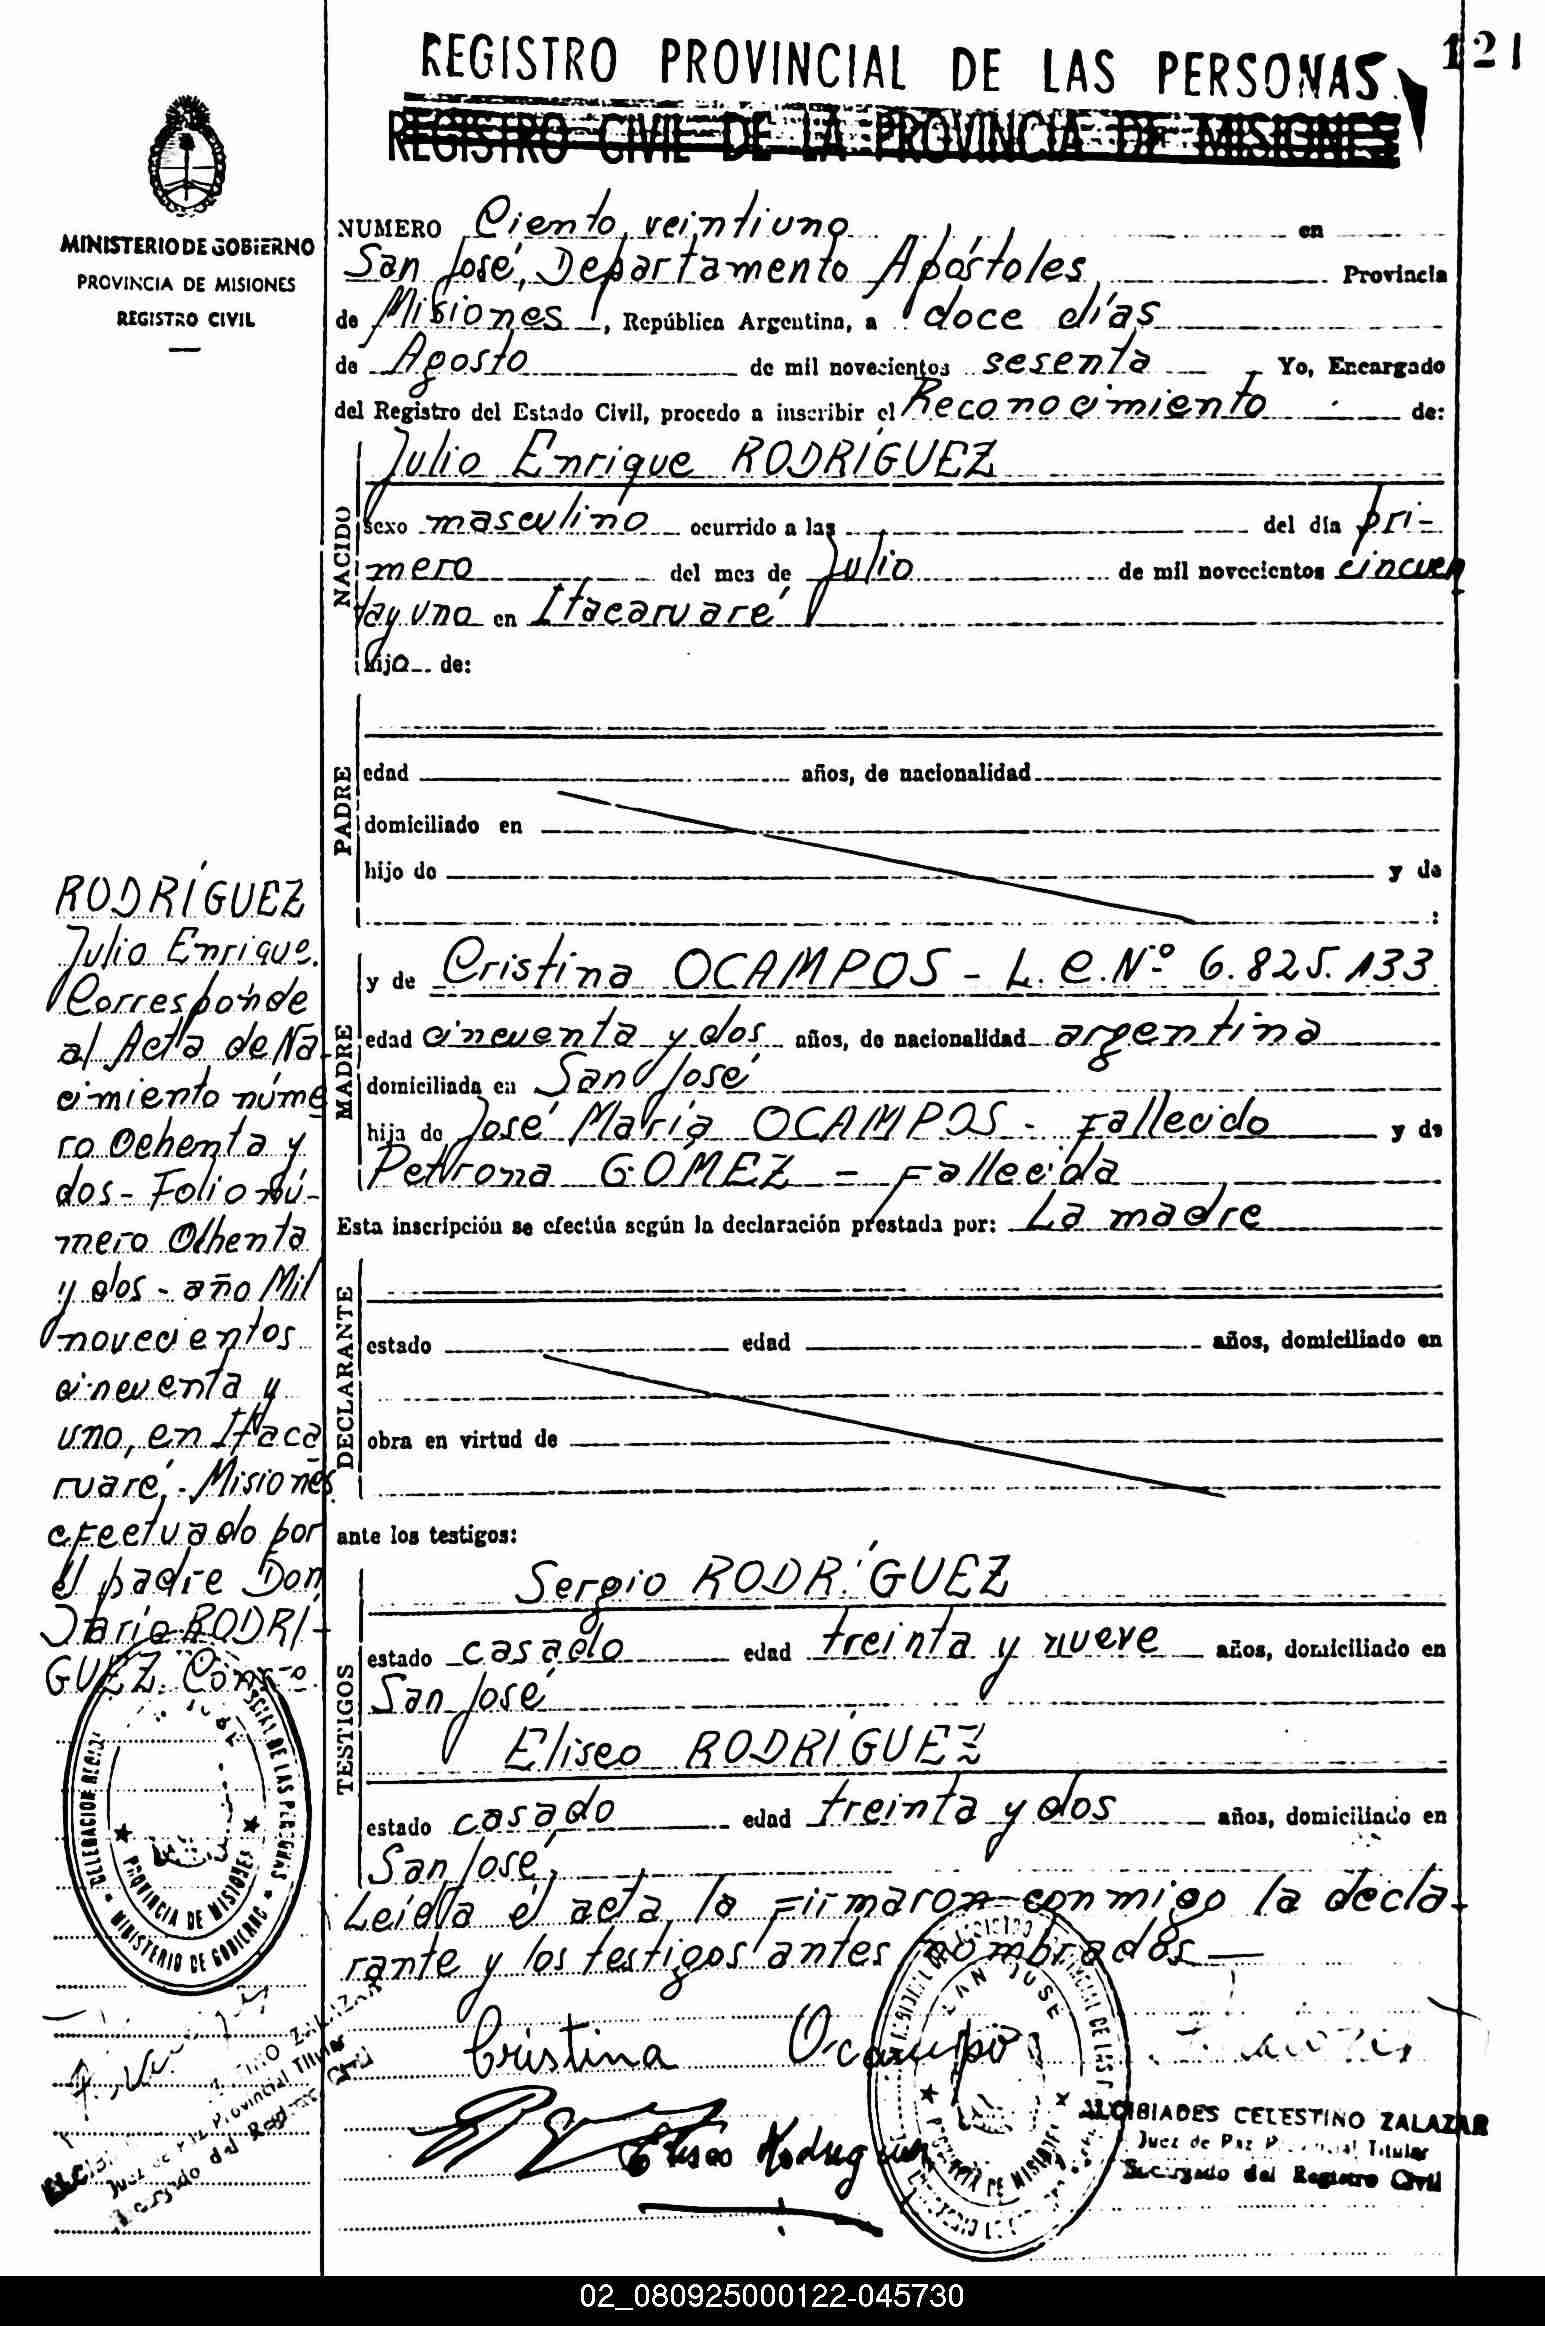 121
REGISTRO PROVINCIAL DE LAS PERSONAS
REGISTRO CIVIL DE LA PROVINCIA DE MISIONES
MINISTERIO DE GOBIERNO
PROVINCIA DE MISIONES
REGISTRO CIVIL
NUMERO Ciento veintiuno en
San José, Departamento Apóstoles Provincia
de Misiones, República Argentina, a doce días
de Agosto de mil novecientos sesenta Yo, Encargado
del Registro del Estado Civil, procedo a inscribir el Reconocimiento de:
NACIDO
Julio Enrique RODRÍGUEZ
sexo masculino ocurrido a las del día pri-
mero del mes de Julio de mil novecientos cincuen
ta y uno en Itacaruaré
hijo de:
PADRE
edad años, de nacionalidad
domiciliado en
hijo de y de
:
MADRE
y de Cristina OCAMPOS - L. C. Nº 6.825.133
edad cincuenta y dos años, de nacionalidad argentina
domiciliada en San José
hija de José María OCAMPOS - Fallecido y de
Petrona GÓMEZ = Fallecida
Esta inscripción se efectúa según la declaración prestada por: La madre
DECLARANTE
estado edad años, domiciliado en
obra en virtud de
ante los testigos:
TESTIGOS
Sergio RODRÍGUEZ
estado casado edad treinta y nueve años, domiciliado en
San José
Eliseo RODRÍGUEZ
estado casado edad treinta y dos años, domiciliado en
San José,
Leída el acta, la firmaron conmigo la decla-
rante y los testigos antes nombrados
Cristina Ocampo
Eliseo Rodriguez
ALCIBIADES CELESTINO ZALAZAR
Juez de Paz Provincial Titular
Encargado del Registro Civil
SAN JOSE
PROVINCIA DE MISIONES
RODRÍGUEZ
Julio Enrique.
Corresponde
al Acta de Na-
cimiento núme
ro Ochenta y
dos - Folio nú-
mero Ochenta
y dos - año Mil
novecientos
cincuenta y
uno, en Itaca
ruaré, - Misiones
efectuado por
el padre Don
Darío RODRÍ-
GUEZ. Conste.
PROVINCIA DE MISIONES
MINISTERIO DE GOBIERNO
Juez de Paz Provincial Titular
Encargado del Registro Civil
02_080925000122-045730